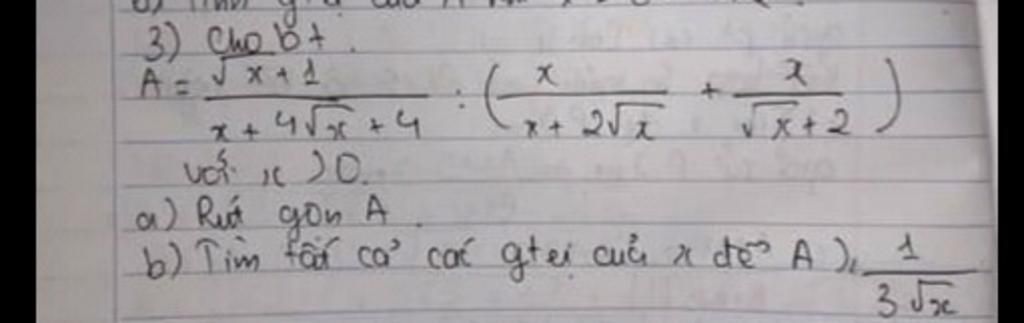 3) Cho bt.
A = √x+1 / x + 4√x + 4 : ( x / x + 2√x + x / √x + 2 )
với x > 0.
a) Rút gọn A.
b) Tìm tất cả các gtrị của x để A ≥ 1 / 3√x